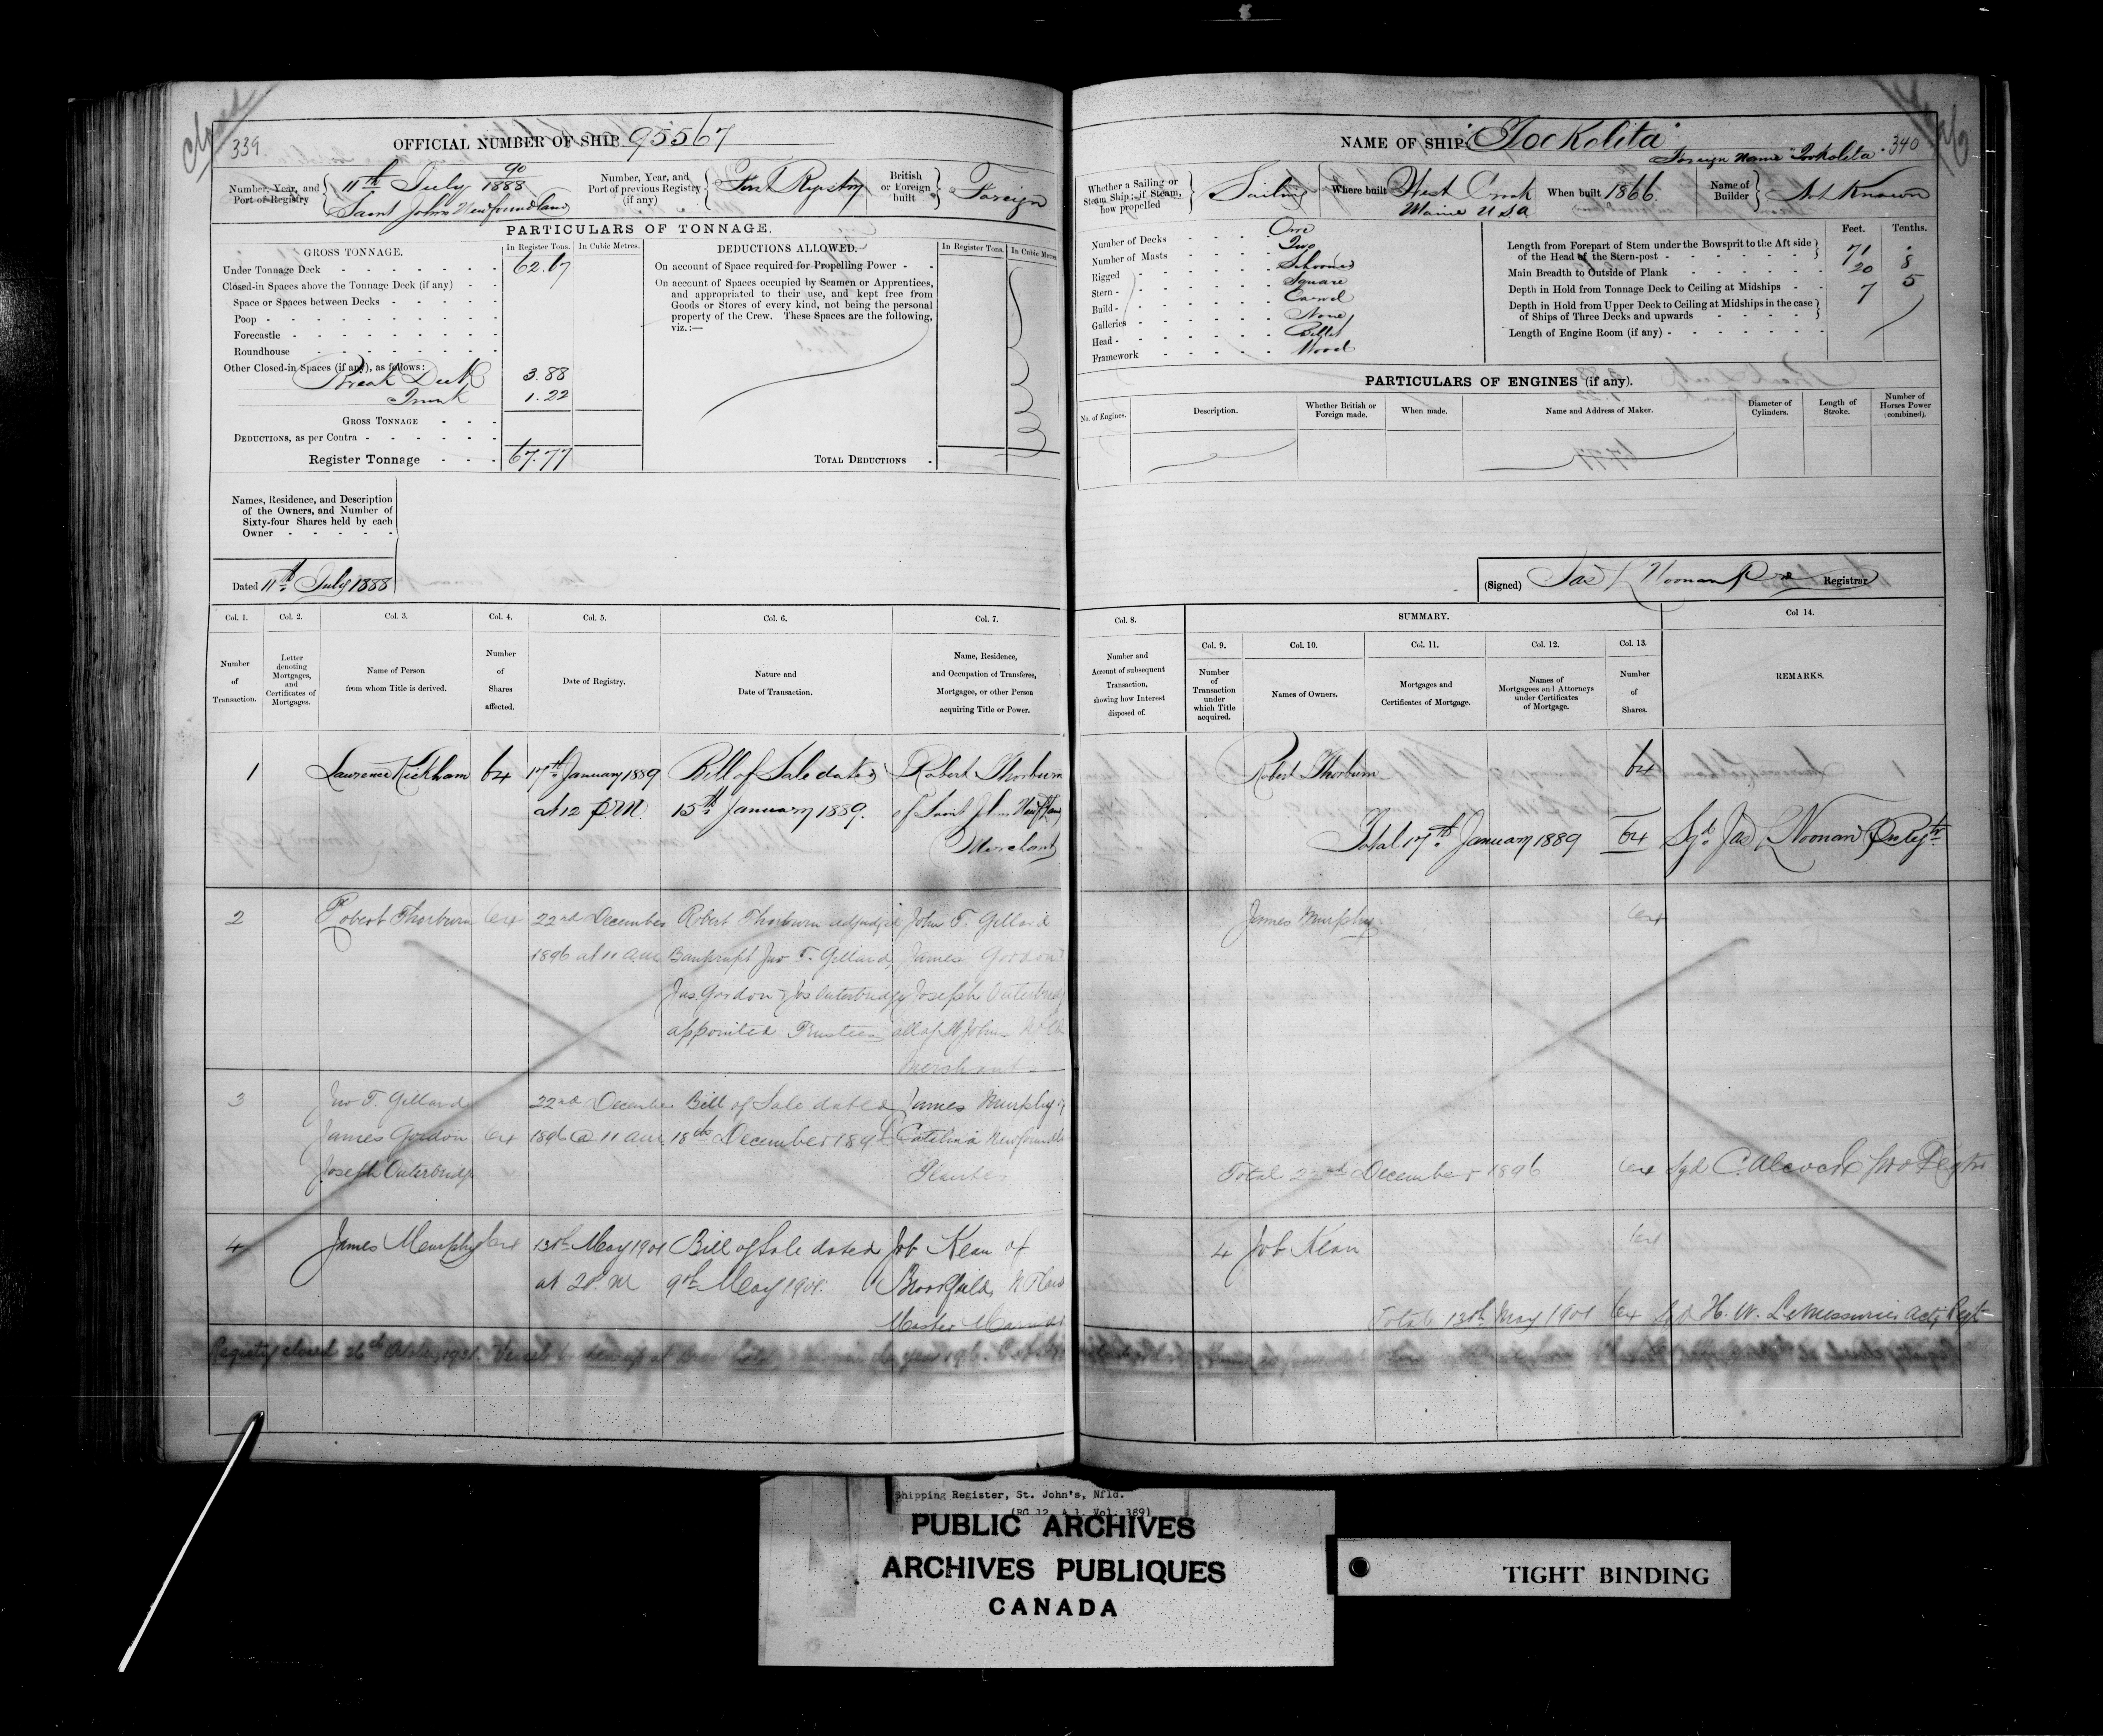 Closed
339
OFFICIAL NUMBER OF SHIP 95567
Number, Year, and Port of Registry
90
11th July 1888
Saint John's Newfoundland
Number, Year, and Port of previous Registry (if any)
First Registry
British or Foreign built
Foreign
PARTICULARS OF TONNAGE.
GROSS TONNAGE.
In Register Tons.
In Cubic Metres.
Under Tonnage Deck 62.67
Closed-in Spaces above the Tonnage Deck (if any)
Space or Spaces between Decks
Poop
Forecastle
Roundhouse
Other Closed-in Spaces (if any), as follows:
Break Deck 3.88
Trunk 1.22
GROSS TONNAGE
DEDUCTIONS, as per Contra
Register Tonnage 67.77
DEDUCTIONS ALLOWED.
In Register Tons.
In Cubic Metres
On account of Space required for Propelling Power
On account of Spaces occupied by Seamen or Apprentices,
and appropriated to their use, and kept free from
Goods or Stores of every kind, not being the personal
property of the Crew. These Spaces are the following,
viz.:—
TOTAL DEDUCTIONS
Names, Residence, and Description
of the Owners, and Number of
Sixty-four Shares held by each
Owner
Dated 11th July 1888
NAME OF SHIP "Tockolita"
340
Foreign Name "Tockolita"
Whether a Sailing or Steam Ship; if Steam, how propelled
Sailing
Where built
West Creek
Maine USA
When built 1866.
Name of Builder
Not Known
Number of Decks One
Number of Masts Two
Rigged Schooner
Stern Square
Build Carvel
Galleries None
Head Billet
Framework Wood
Feet. Tenths.
Length from Forepart of Stem under the Bowsprit to the Aft side
of the Head of the Stern-post 71 .
Main Breadth to Outside of Plank 20 8
Depth in Hold from Tonnage Deck to Ceiling at Midships 7 5
Depth in Hold from Upper Deck to Ceiling at Midships in the case
of Ships of Three Decks and upwards
Length of Engine Room (if any)
PARTICULARS OF ENGINES (if any).
No. of Engines.
Description.
Whether British or Foreign made.
When made.
Name and Address of Maker.
Diameter of Cylinders.
Length of Stroke.
Number of Horses Power (combined).
(Signed) Jas L Noonan Registrar
Col. 1.
Col. 2.
Col. 3.
Col. 4.
Col. 5.
Col. 6.
Col. 7.
Number of Transaction.
Letter denoting Mortgages, and Certificates of Mortgages.
Name of Person from whom Title is derived.
Number of Shares affected.
Date of Registry.
Nature and Date of Transaction.
Name, Residence, and Occupation of Transferee, Mortgagee, or other Person acquiring Title or Power.
Col. 8.
SUMMARY.
Col 14.
Col. 9.
Col. 10.
Col. 11.
Col. 12.
Col. 13.
Number and Account of subsequent Transaction, showing how Interest disposed of.
Number of Transaction under which Title acquired.
Names of Owners.
Mortgages and Certificates of Mortgage.
Names of Mortgagees and Attorneys under Certificates of Mortgage.
Number of Shares.
REMARKS.
1 Lawrence Kickham 64 17th January 1889 Bill of Sale dated Robert Thorburn
at 12 P.M. 15th January 1889. of Saint Johns
Merchant
Robert Thorburn 64
Total 17th January 1889 64 Sgd Jas L Noonan
2 Robert Thorburn 64 22nd December Robert Thorburn adjudged John T. Gillard
1896 at 11 am Bankrupt Jno T. Gillard, James Gordon
Jas. Gordon & Jos Outerbridge Joseph Outerbridge
appointed Trustees all of St Johns
Merchant
James Murphy 64
3 Jno T. Gillard 22nd December Bill of Sale dated James Murphy of
James Gordon 64 1896 @ 11 am 18th December 1896 Catalina
Joseph Outerbridge Planter
Total 22nd December 1896 64 Sgd C. Alcock pro Regtr
4 James Murphy 64 13th May 1901 Bill of Sale dated Job Kean of
at 2 P.M 9th May 1901. Brookfield,
Master Mariner
4 Job Kean 64
Total 13th May 1901 64 Sgd H. W. LeMessurier Actg Regt
Registry closed 26th
Shipping Register, St. John's, Nfld.
(RG 12, A 1, Vol. 389)
PUBLIC ARCHIVES
ARCHIVES PUBLIQUES
CANADA
TIGHT BINDING